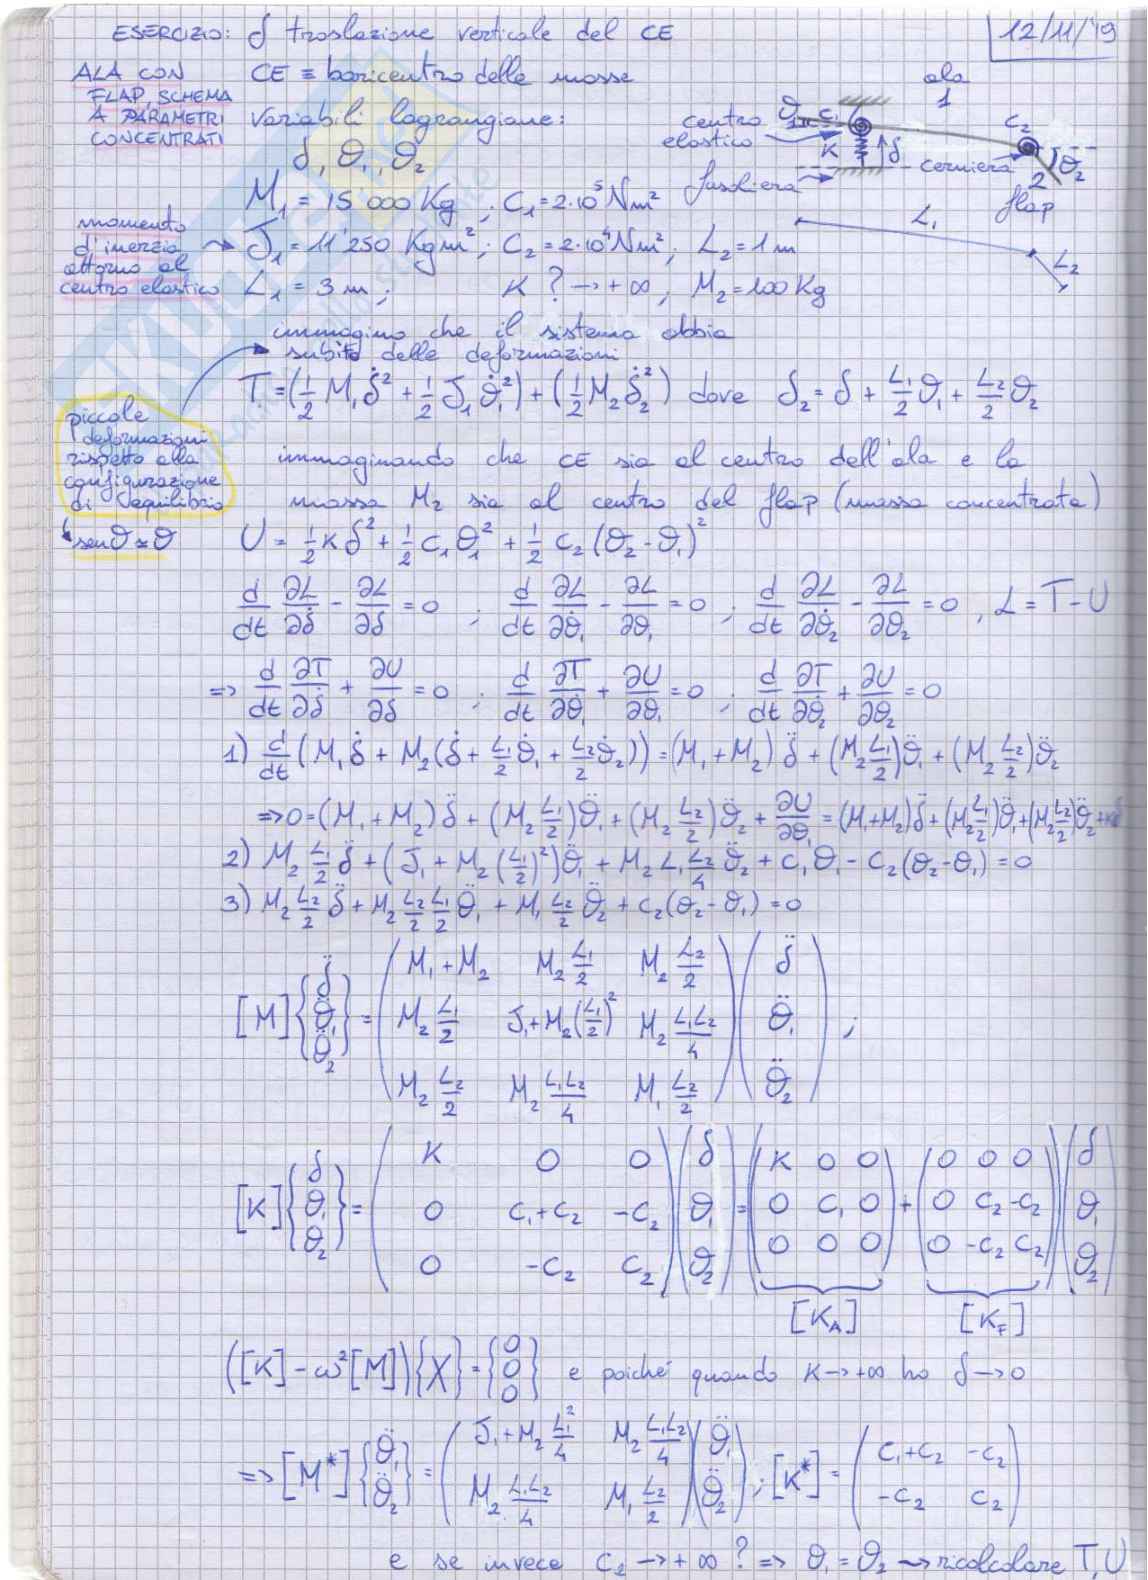 ESERCIZIO: δ traslazione verticale del CE
12/11/'19
ALA CON
FLAP, SCHEMA
A PARAMETRI
CONCENTRATI
CE ≡ baricentro delle masse
variabili lagrangiane:
δ, θ₁, θ₂
ala
1
centro
elastico
θ₁
C₁
C₂
K
δ
cerniera
θ₂
2
flap
fusoliera
L₁
L₂
M₁ = 15 000 Kg ; C₁ = 2·10⁵ Nm²
momento
d'inerzia
attorno al
centro elastico
J₁ = 11'250 Kgm² ; C₂ = 2·10⁴ Nm² ; L₂ = 1 m
L₁ = 3 m ; K ? → +∞ , M₂ = 100 Kg
immagino che il sistema abbia
subito delle deformazioni
T = (1/2 M₁ δ̇² + 1/2 J₁ θ̇₁²) + (1/2 M₂ δ̇₂²) dove δ₂ = δ + L₁/2 θ₁ + L₂/2 θ₂
piccole
deformazioni
rispetto alla
configurazione
di equilibrio
senθ ≈ θ
immaginando che CE sia al centro dell'ala e la
massa M₂ sia al centro del flap (massa concentrata)
U = 1/2 K δ² + 1/2 C₁ θ₁² + 1/2 C₂ (θ₂ - θ₁)²
d/dt ∂L/∂δ̇ - ∂L/∂δ = 0 ; d/dt ∂L/∂θ̇₁ - ∂L/∂θ₁ = 0 ; d/dt ∂L/∂θ̇₂ - ∂L/∂θ₂ = 0 , L = T - U
=> d/dt ∂T/∂δ̇ + ∂U/∂δ = 0 ; d/dt ∂T/∂θ̇₁ + ∂U/∂θ₁ = 0 ; d/dt ∂T/∂θ̇₂ + ∂U/∂θ₂ = 0
1) d/dt (M₁ δ̇ + M₂ (δ̇ + L₁/2 θ̇₁ + L₂/2 θ̇₂)) = (M₁ + M₂) δ̈ + (M₂ L₁/2) θ̈₁ + (M₂ L₂/2) θ̈₂
=> 0 = (M₁ + M₂) δ̈ + (M₂ L₁/2) θ̈₁ + (M₂ L₂/2) θ̈₂ + ∂U/∂θ₁ = (M₁+M₂) δ̈ + (M₂ L₁/2) θ̈₁ + (M₂ L₂/2) θ̈₂ +
2) M₂ L₁/2 δ̈ + (J₁ + M₂ (L₁/2)²) θ̈₁ + M₂ L₁ L₂/4 θ̈₂ + C₁ θ₁ - C₂ (θ₂ - θ₁) = 0
3) M₂ L₂/2 δ̈ + M₂ L₂/2 L₁/2 θ̈₁ + M₁ L₂/2 θ̈₂ + C₂ (θ₂ - θ₁) = 0
[M] {δ̈ θ̈₁ θ̈₂} = ( M₁ + M₂ M₂ L₁/2 M₂ L₂/2 ) ( δ̈ )
( M₂ L₁/2 J₁ + M₂ (L₁/2)² M₂ L₁L₂/4 ) ( θ̈₁ ) ;
( M₂ L₂/2 M₂ L₁L₂/4 M₁ L₂/2 ) ( θ̈₂ )
[K] {δ θ₁ θ₂} = ( K 0 0 ) ( δ ) = ( ( K 0 0 ) + ( 0 0 0 ) ) ( δ )
( 0 C₁+C₂ -C₂ ) ( θ₁ ) ( 0 C₁ 0 ) ( 0 C₂ -C₂ ) ( θ₁ )
( 0 -C₂ C₂ ) ( θ₂ ) ( 0 0 0 ) ( 0 -C₂ C₂ ) ( θ₂ )
[K_A] [K_F]
([K] - ω² [M]) {X} = {0 0 0} e poiché quando K → +∞ ho δ → 0
=> [M*] {θ̈₁ θ̈₂} = ( J₁ + M₂ L₁²/4 M₂ L₁L₂/4 ) ( θ̈₁ ) ; [K*] = ( C₁+C₂ -C₂ )
( M₂ L₁L₂/4 M₁ L₂/2 ) ( θ̈₂ ) ( -C₂ C₂ )
e se invece C₂ → +∞ ? => θ₁ = θ₂ → ricalcolare T, U